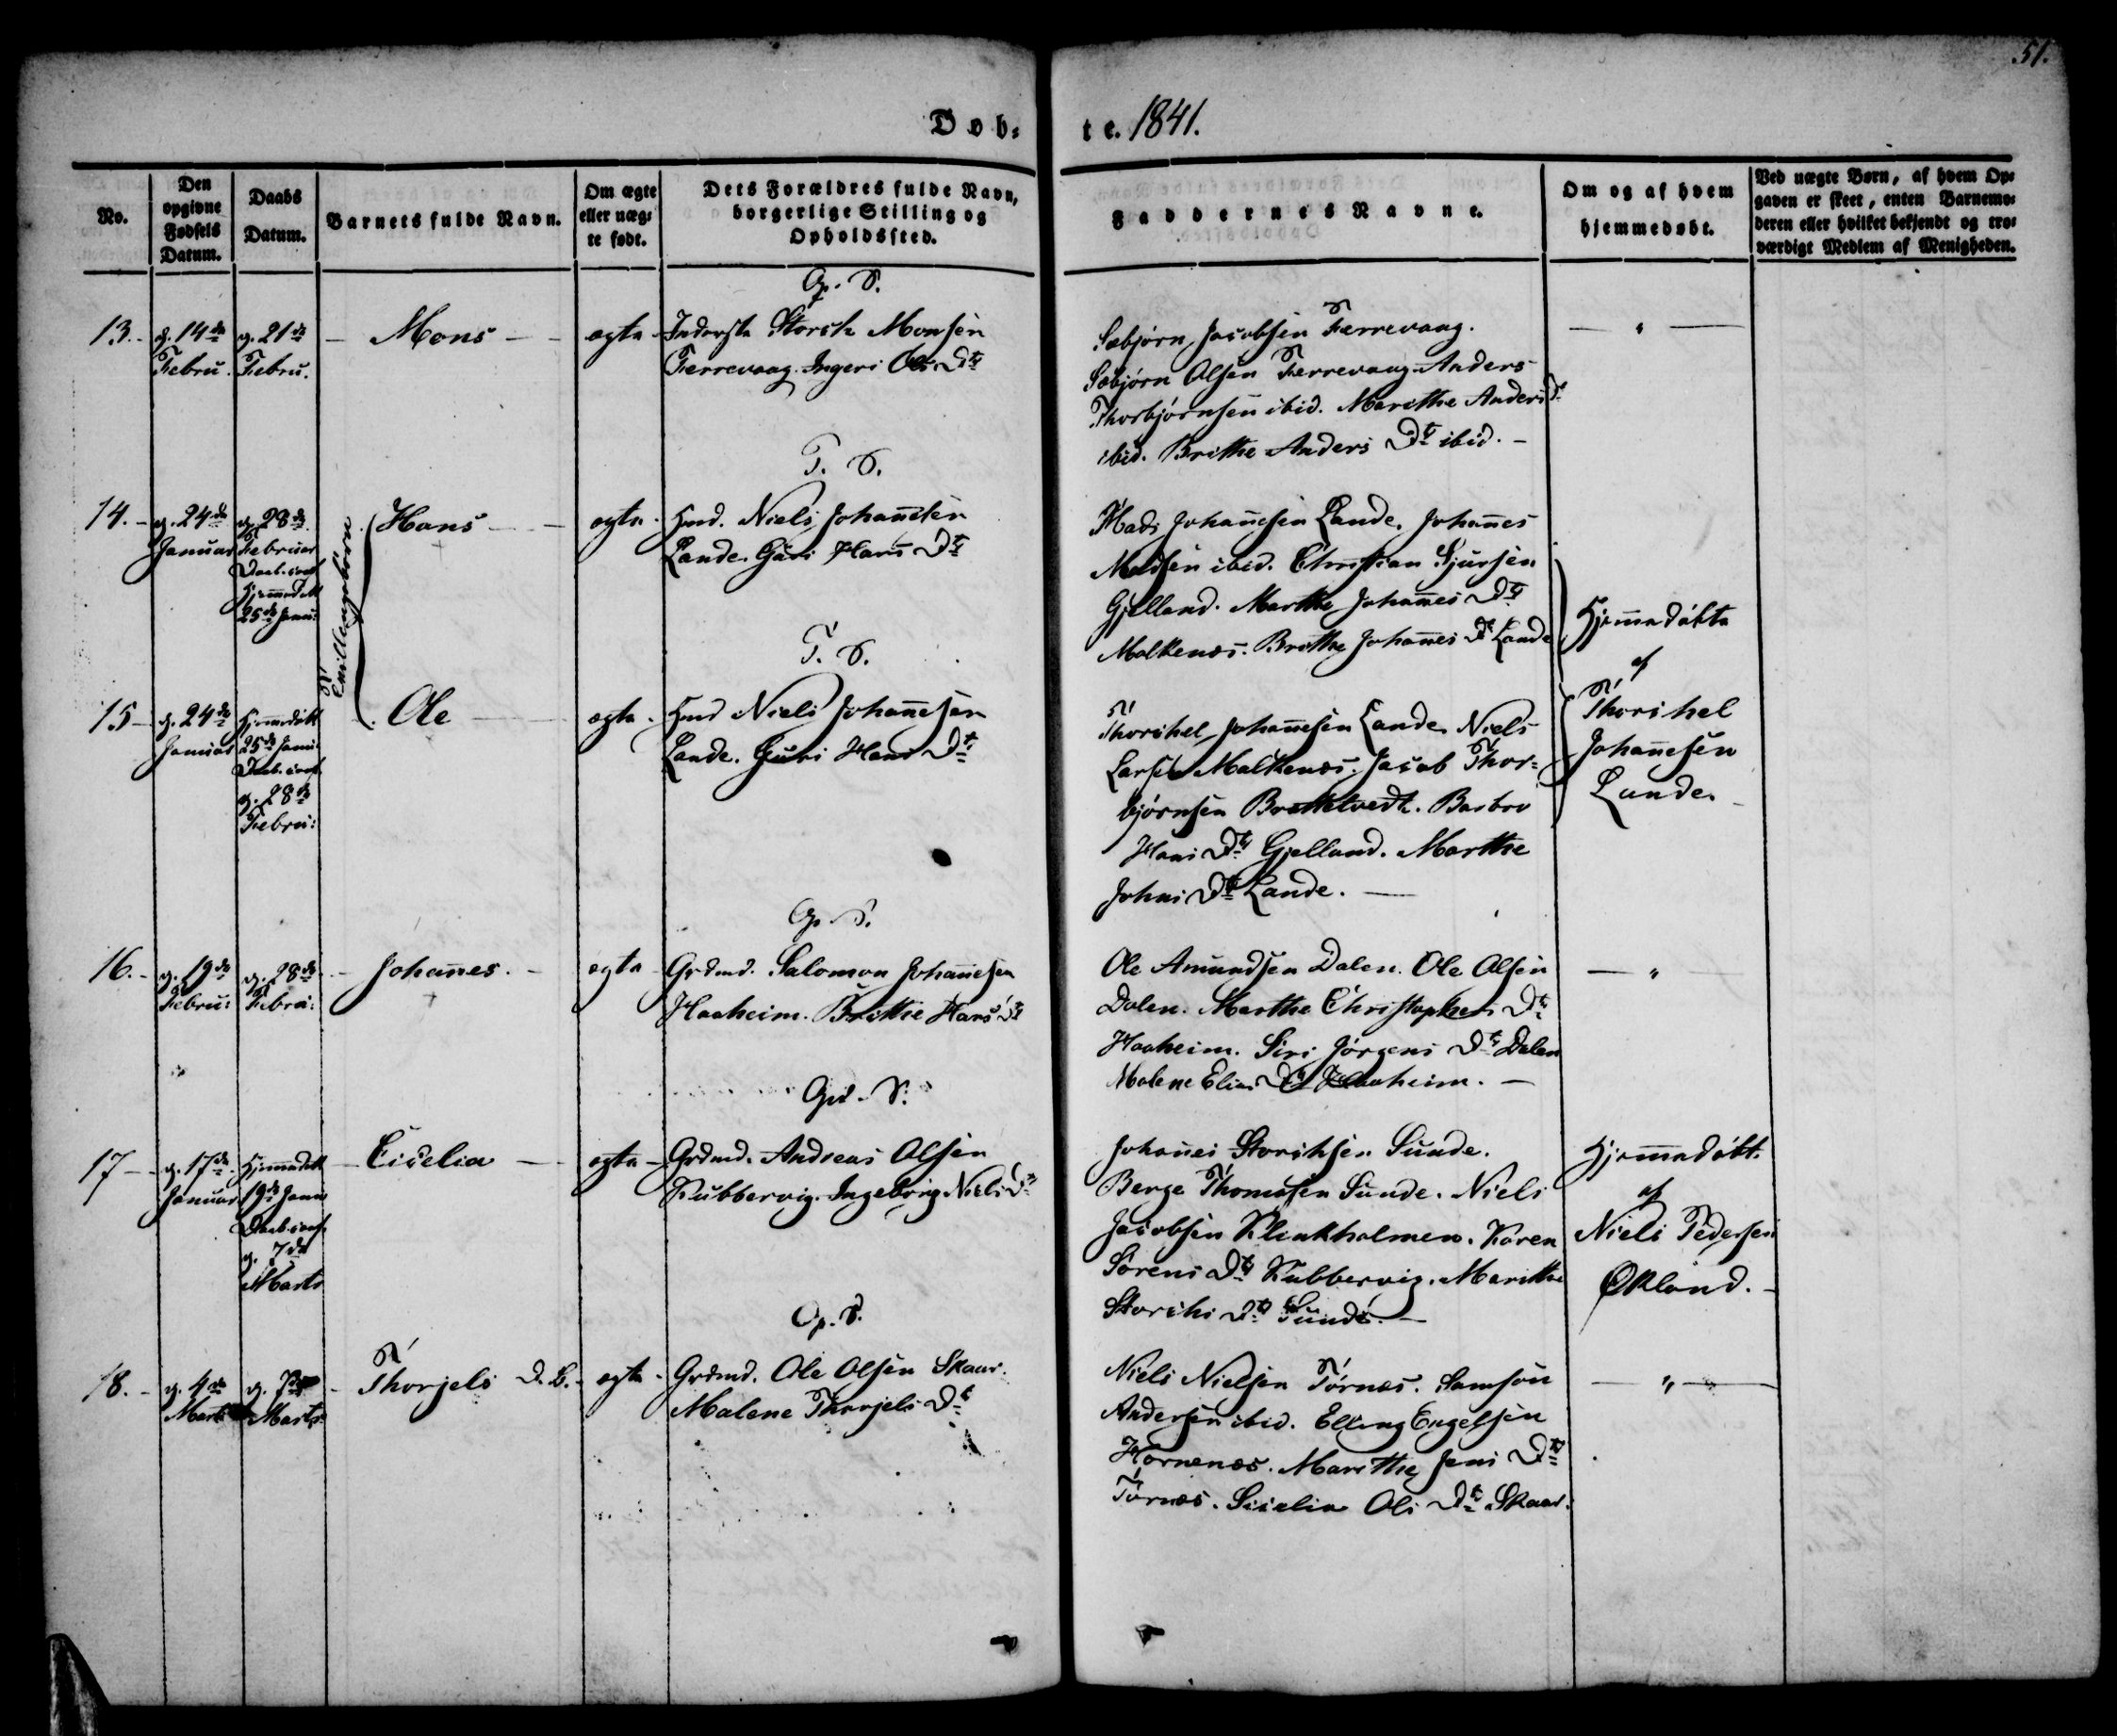 51.
Døb-
te. 1841.
No.
Den opgivne Fødsels Datum.
Daabs Datum.
Barnets fulde Navn.
Om ægte eller uæg-te født.
Dets Forældres fulde Navn, borgerlige Stilling og Opholdssted.
Faddernes Navne.
Om og af hvem hjemmedøbt.
Ved uægte Børn, af hvem Op-gaven er skeet, enten Barnemo-deren eller hvilket bekjendt og tro-værdigt Medlem af Menigheden.
13. d. 14de Febru. d. 21de Febru. Mons ægte
Monsen
Færrevaag. Ingeri Ols Dtr
Sæbjørn Jacobsen Færrevaag.
Sæbjørn Olsen Færrevaag. Anders
Thorbjørnsen ibid. Marithe Anders Dtr
ibid. Brithe Anders Dtr ibid.
T. S.
14. d. 24de Januar d. 28de Februar
Hjemmedøbt
25de Janu:
Tvillingebørn
Hans ægte Hmd. Niels Johannesen
Lande. Guri Hans Dtr
Mads Johannesen Lande. Johannes
Madsen ibid. Christian Sjursen
Gjelland. Marthe Johannes Dtr
Malkenæs. Brithe Johannes Dtr Lande
Hjemmedøbte
af
Thorchel
Johannesen
Lande.
T. S.
15 d. 24de Januar Hjemmedøbt
25de Janu:
d. 28de
Febru:
Ole ægte Hmd Niels Johannesen
Lande. Guri Hans Dtr
Thorchel Johannesen Lande. Niels
Larsen Malkenæs. Jacob Thor-
bjørnsen Brattetvedt. Barbro
Hans Dtr Gjelland. Marthe
Johns Dtr Lande.
16. d. 19de Febru: d. 28de Febru: Johannes. ægte Grdmd. Salomon Johannesen
Haaheim. Brithe Hans Dtr
Ole Amundsen Dalen. Ole Olsen
Dalen. Marthe Christophers Dtr
Haaheim. Siri Jørgens Dtr Dalen
Malene Elias Dtr Haaheim.
17 d. 17de Januar Hjemmedøbt
19de Janu
d. 7de
Marts
Cicelia ægte Grdmd. Andreas Olsen
Kubbervig. Ingebrig Niels Dtr
Johannes Storchsen Sunde.
Berge Thomasen Sunde. Niels
Jacobsen Klinkholmen. Karen
Sørens Dtr Kubbervig. Marithe
Storchs Dtr Sunde.
Hjemmedøbt.
af
Niels Pedersen
Økland.
18. d. 4de Marts d. 7de Marts Thorjels D. B. ægte Grdmd. Ole Olsen Skaar.
Malene Thorjels Dtr
Niels Nielsen Tørnæs. Samson
Andersen ibid. Elling Engelsen
Hornenæs. Marithe Jens Dtr
Tørnæs. Sicelia Ols Dtr Skaar.